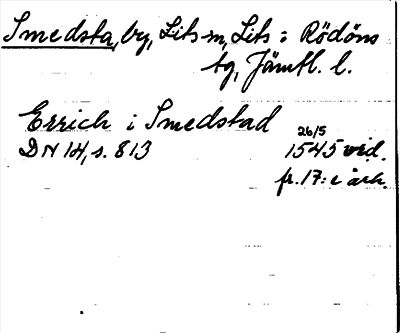 Smedsta, by, Lits sn, Lits o Rödöns
tg, Jämtl. l.
Errich i Smedstad
DN 14, s. 813 26/5 1545 vid.
fr. 17:e årh.